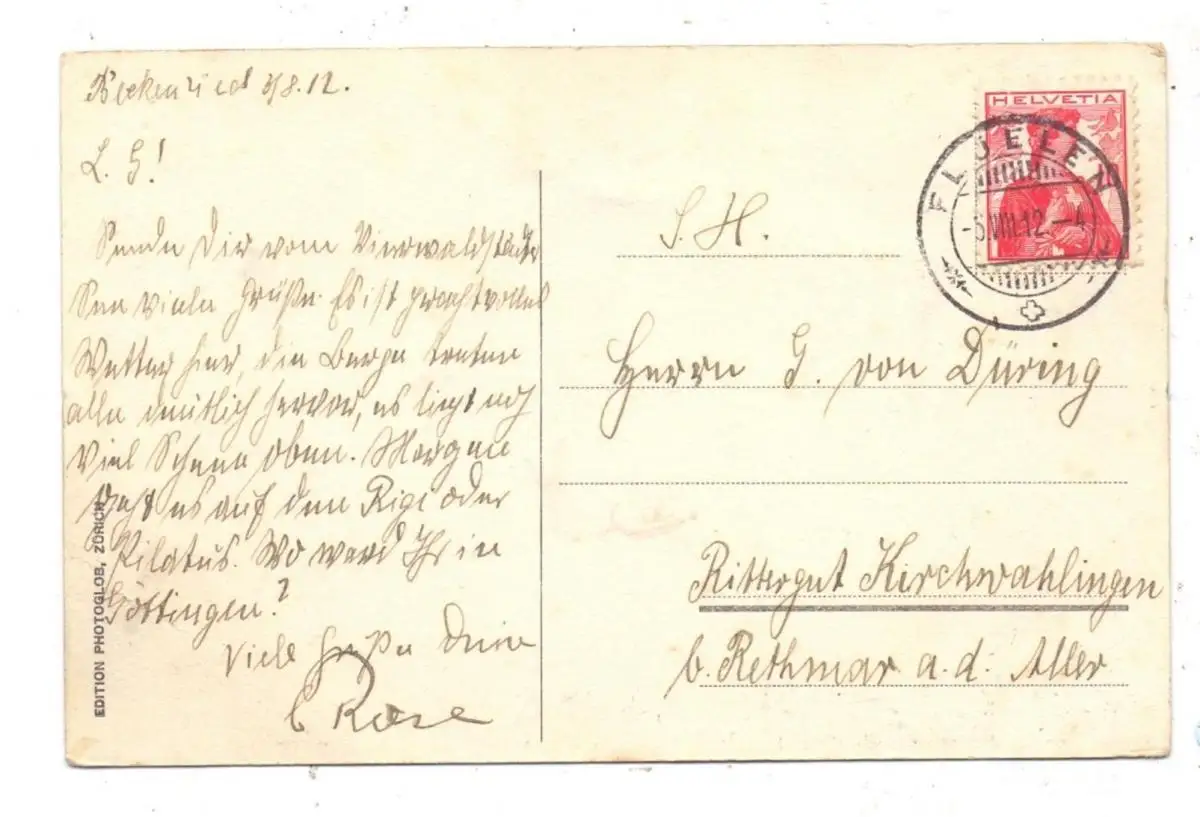 Beckenried 3/8.12.
L. G!
Sende Dir vom Vierwaldstätter
See viele Grüße. Es ist prachtvolles
Wetter hier, die Berge treten
alle deutlich hervor, es liegt noch
viel Schnee oben. Morgen
geht es auf den Rigi oder
Pilatus. Wo ward Ihr in
Göttingen?
Viele Grüße Dein
EDITION PHOTOGLOB, ZÜRICH
HELVETIA
FLÜELEN
-5.VIII.12.-4
S. H.
Herrn G. von Düring
Rittergut Kirchwahlingen
b. Rethmar a. d. Aller